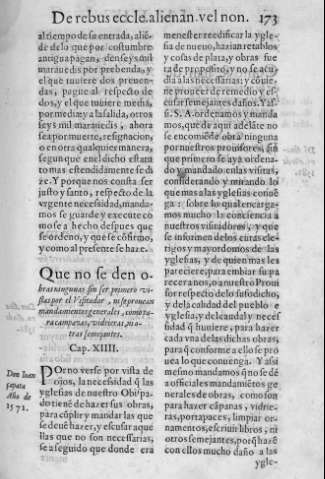 De rebus eccle. alienan. vel non. 173
al tiempo de su entrada, alié-
de de lo que por costumbre
antigua pagan, den seys mil
marauedis por prebenda, y
el que tuuiere dos prenen-
das, pague al respecto de
dos, y el que tuuiere media,
por media: y a la salida, otros
seys mil marauedis, ahora
sea por muerte, resignacion,
o en otra qualquier manera,
segun que en el dicho estatu
to mas estendidamente se di
ze. Y porque nos consta ser
justo y santo, respecto de la
vrgente necessidad, manda-
mos se guarde y execute co
mo se a hecho despues que
se ordeno, y que se cõfirmo,
y como al presente se haze.
Que no se den o-
bras ningunas sin ser primero vi-
stas por el Visitador, ni se prouean
mandamientos generales, como pa-
ra campanas, vidrieras, ni o-
tras semejantes.
Cap. XIIII.
Don Iuan
çapata
Año de
1572.
POr no verse por vista de
ojos, la necessidad q̃ las
yglesias de nuestro Obispa-
do tienẽ de hazer sus obras,
para cũplir y mandar las que
se deuẽ hazer, y escusar aque
llas que no son necessarias,
se a seguido que donde era
menester reedificar la ygle-
sia de nueuo, hazian retablos
y cosas de plata, y obras fue
ra de proposito, y no se acu-
dia a las necessarias: y cõuie
ne proueer de remedio y es-
cusar semejantes daños. Y assi
S. S. A. ordenamos y manda
mos, que de aqui adelãte no
se encomiẽde obra ninguna
por nuestros prouisores, sin
que primero se aya ordena-
do y mandado en las visitas,
considerando y mirando lo
que mas a las yglesias conuẽ
ga: sobre lo qual encarga-
mos mucho la conciencia a
nuestros visitadores, y que
se informen de los curas cle-
rigos y mayordomos de las
yglesias, y de quien mas les
pareciere, para embiar su pa
recer a nos, o a nuestro Proui
sor respecto de lo susodicho,
y de la calidad del pueblo e
yglesia, y de la cauda y necess
sidad q̃ huuiere, para hazer
cada vna de las dichas obras,
para q̃ conforme a ello se pro
uea lo que conuenga. Y assi
mesmo mandamos q̃ no se dẽ
a officiales mandamiẽtos ge
nerales de obras, como son
para hazer cãpanas, vidrie-
ras, portapaces, limpiar or-
namentos, escriuir libros, ni
otros semejantes, porq̃ hazẽ
con ellos mucho daño a las
ygle-